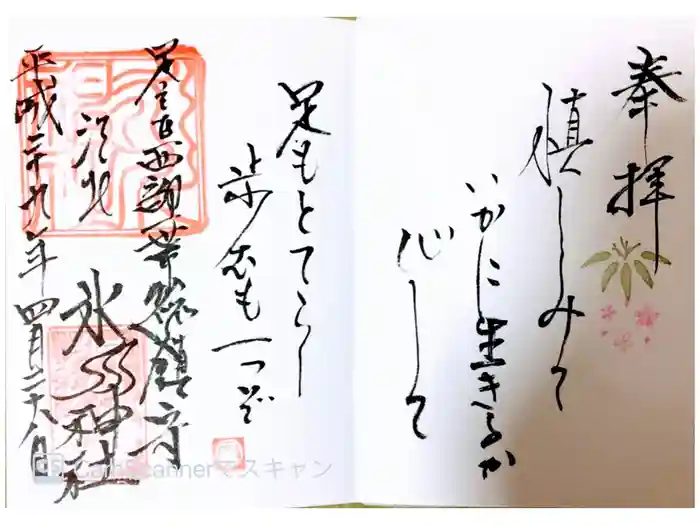 奉拝
慎しみて
いかに生きるか
心して
足もとてらし
も一つぞ
鎮守
江北
氷川神社
平成二十九年四月二十八日
CS CamScannerでスキャン